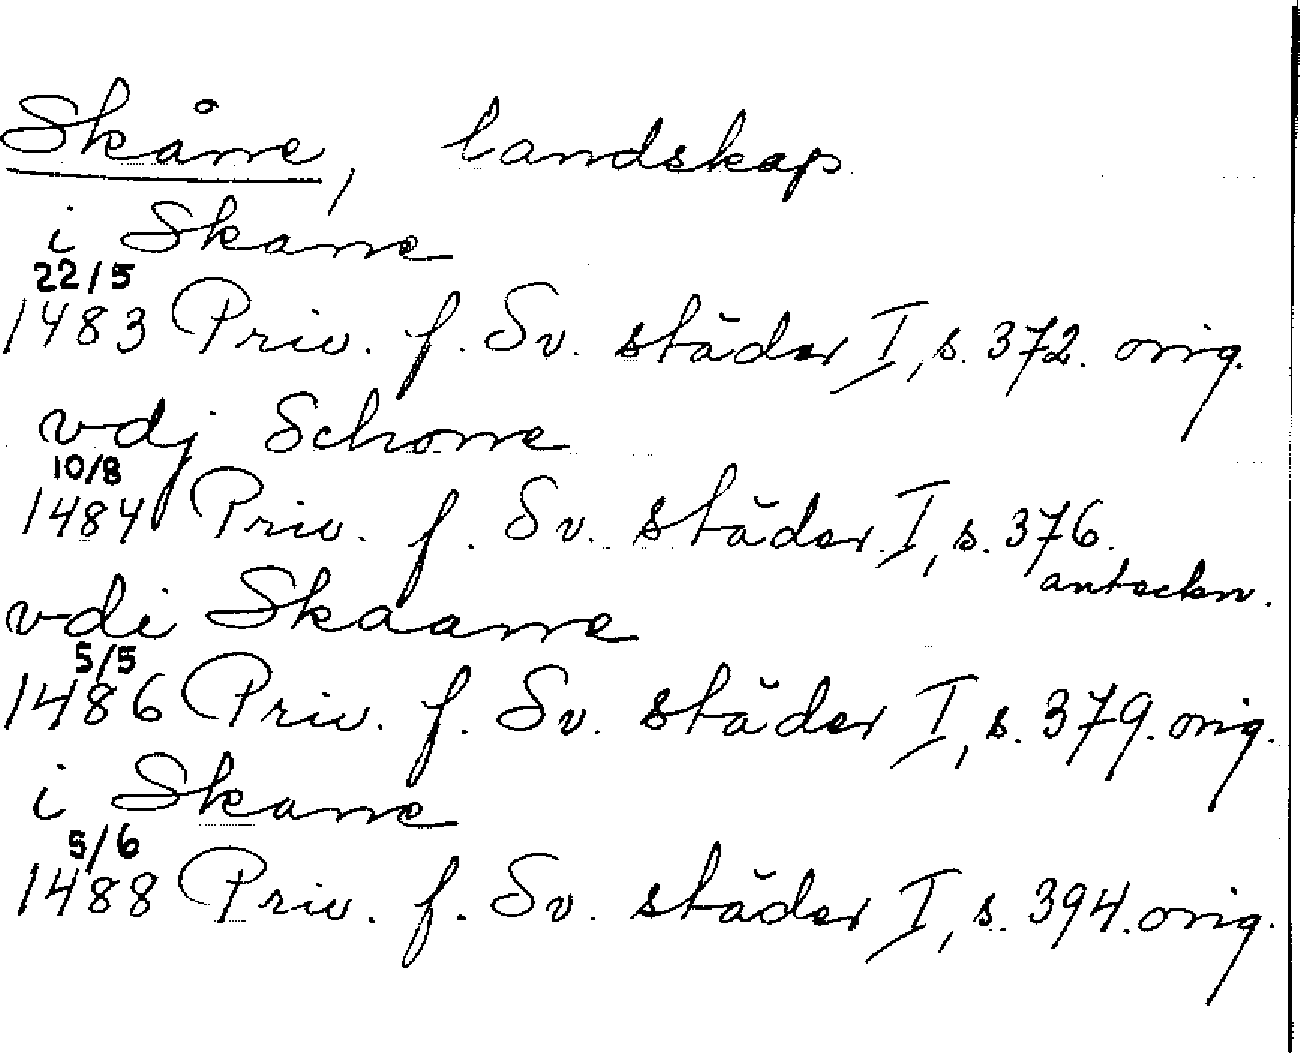 Skåne, landskap
i Skane
22/5
1483 Priv. f. Sv. städer I, s. 372. orig.
vdj Schone
10/8
1484 Priv. f. Sv. städer I, s. 376.
anteckn.
vdi Skaane
5/5
1486 Priv. f. Sv. städer I, s. 379. orig.
i Skane
5/6
1488 Priv. f. Sv. städer I, s. 394. orig.